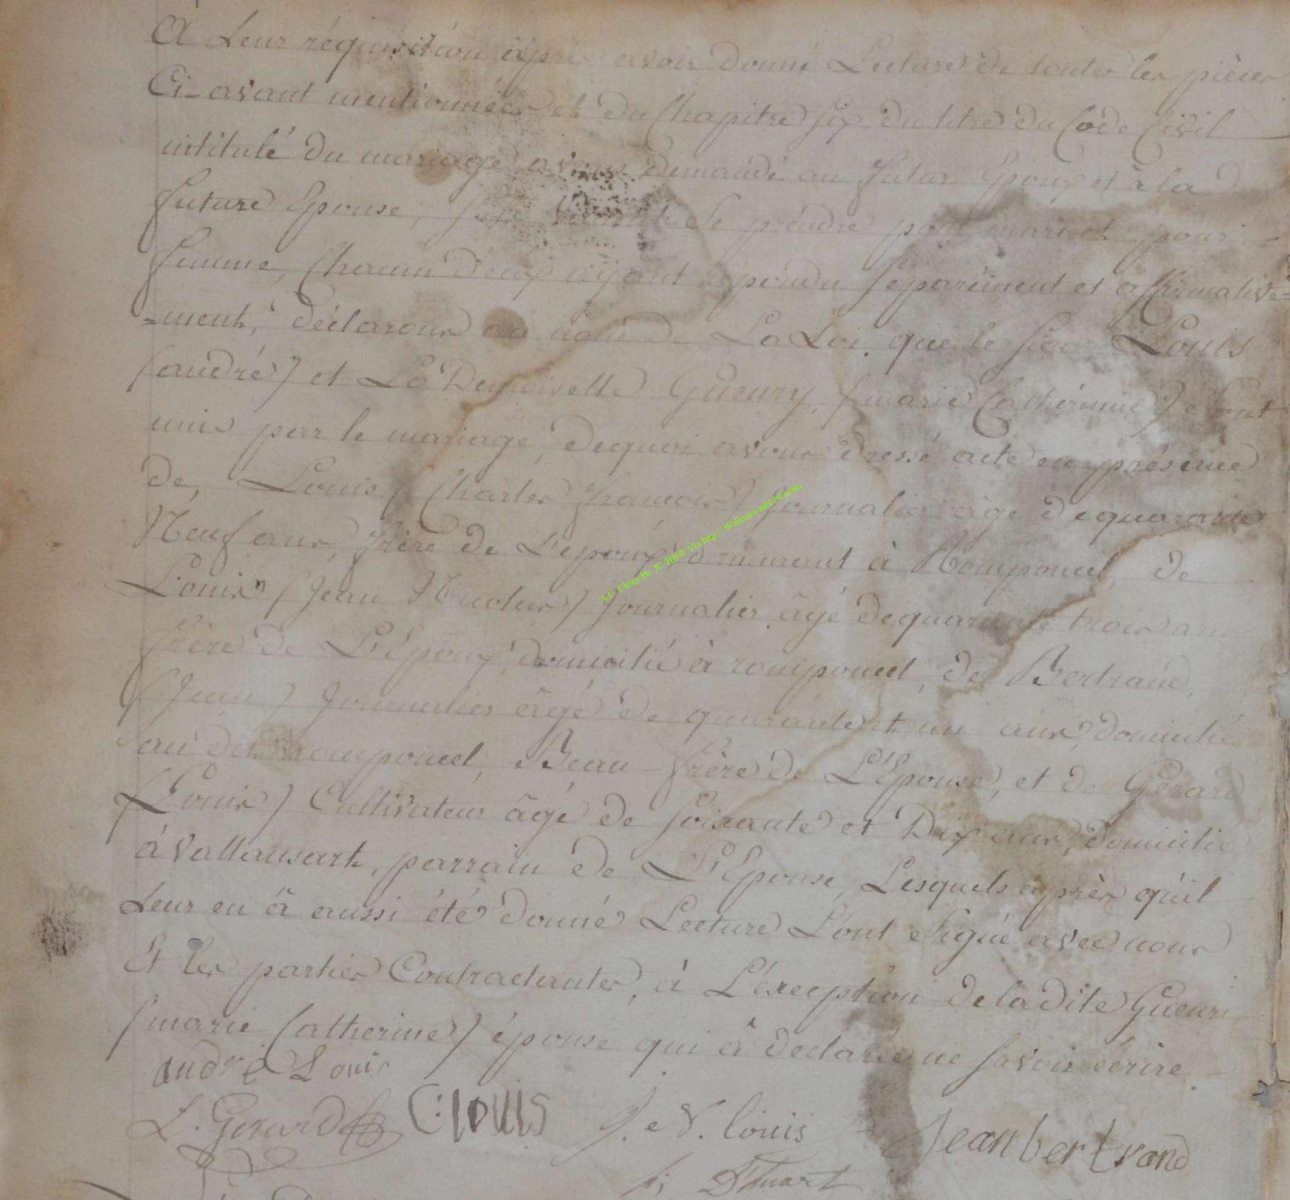 A Leur réquisition après avoir donné Lecture de toutes les pièces
Ci-avant mentionnées et du Chapitre Six, du titre du Code Civil
intitulé du mariage avons Demandé au futur Epoux et à la
future Epouse, se prendre pour mari et pour
femme, Chacun d'eux ayant répondu séparément et affirmative=
=ment, déclarons au nom de La Loi que le Louis
(andré) et La Demoiselle Gueury, (marie Catherinne) sont
unis par le mariage, dequoi avons dressé acte en présence
de, Louis (Charles françois) journalier âgé de quarante
Neuf ans, frère de L'époux demeurant à Romponcel, de
Louis (Jean Nicolas) journalier âgé de quarante trois ans
frère de L'Epoux, domicilié à romponcel, de Bertrand,
(Jean) Journalier âgé de quarante et un ans, domicilié
au dit romponcel, Beau-frère de L'Epouse, et de Gérard
(Louis) Cultivateur âgé de soixante et Dix ans, domicilié
à Vallansart, parrain de L'Epouse, Lesquels après qu'il
Leur en â aussi été donné Lecture L'ont signé avec nous
Et les parties Contractantes, à L'exception de ladite Gueuri
(marie Catherine) épouse qui â déclarée ne savoir écrire.
andré Louis
L. Gerard C: louis J. N. louis Jean bertrand